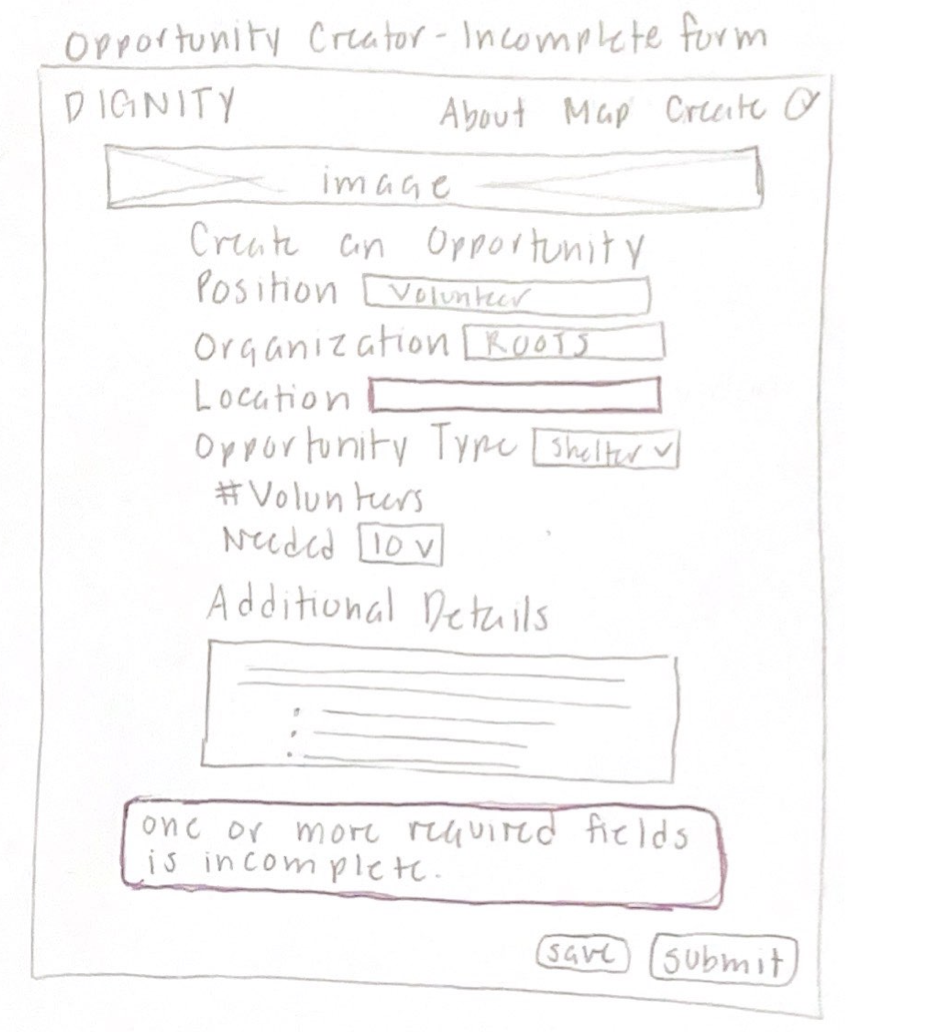 Opportunity Creator - Incomplete form
DIGNITY About Map Create
image
Create an Opportunity
Position Volunteer
Organization ROOTS
Location
Opportunity Type Shelter
#Volunteers
Needed 10
Additional Details
one or more required fields
is incomplete.
save submit